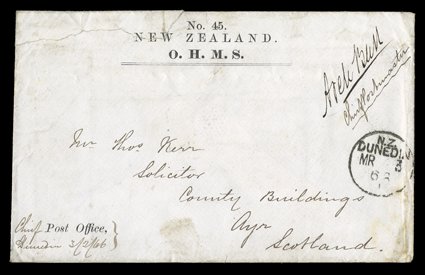 No. 45.
NEW ZEALAND.
O. H. M. S.
Chief Postmaster
N.Z
DUNEDIN
MR 3
68
Mr Thos Kerr
Solicitor
County Buildings
Ayr
Scotland.
Chief Post Office,
Dunedin 3/2/66